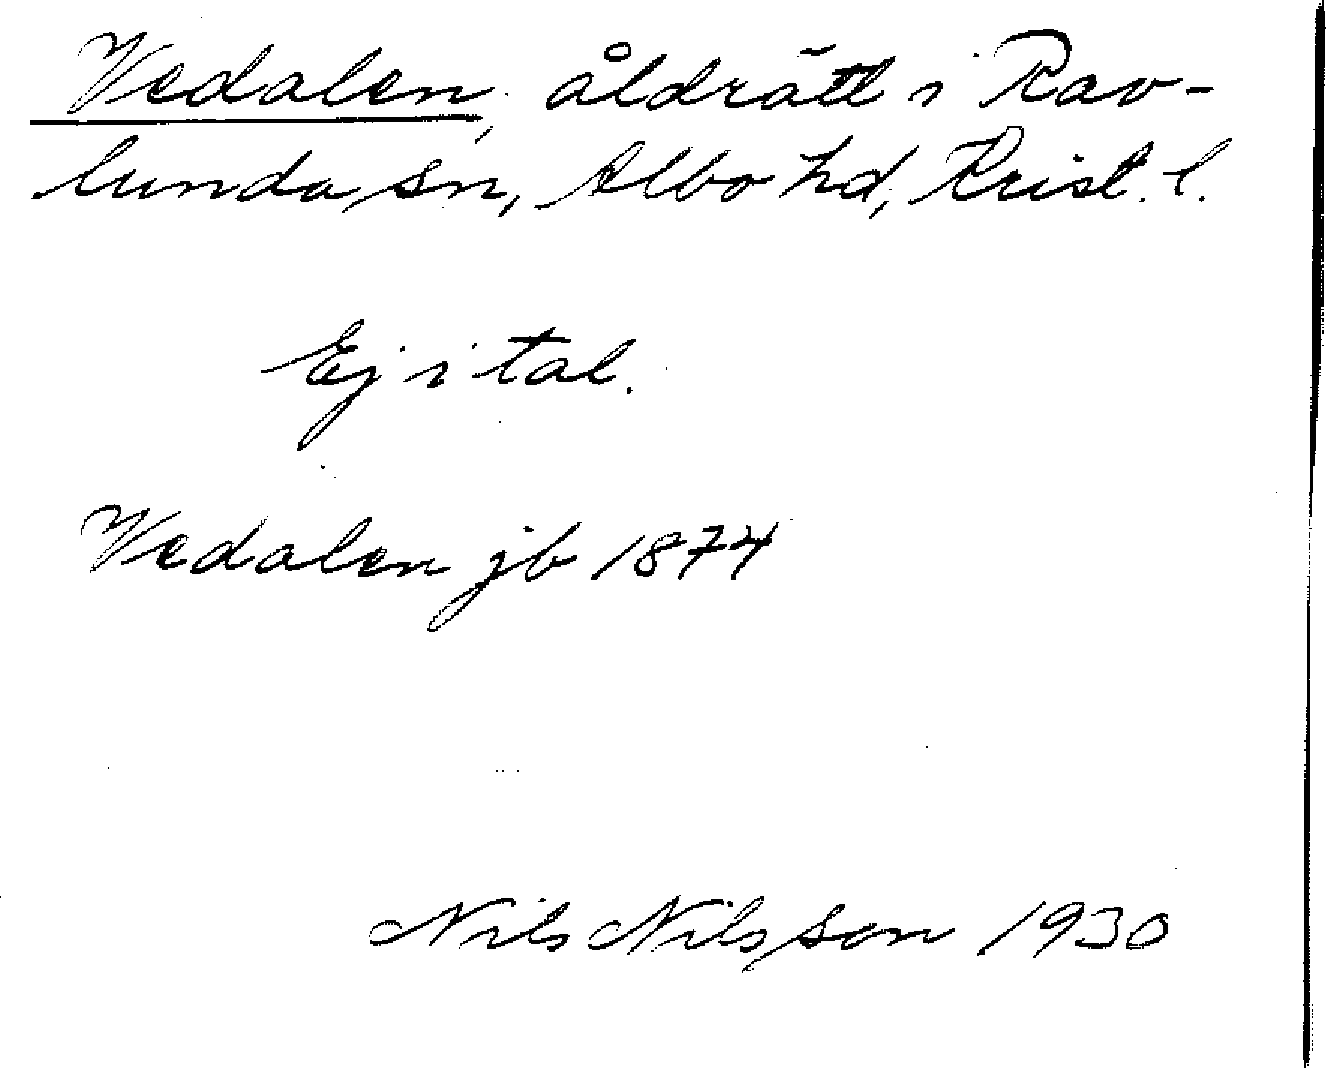 Vedalen, åldrätt i Rav-
lunda sn, Albo hd, Krist. l.
Ej i tal.
Vedalen jb 1874
Nils Nilsson 1930